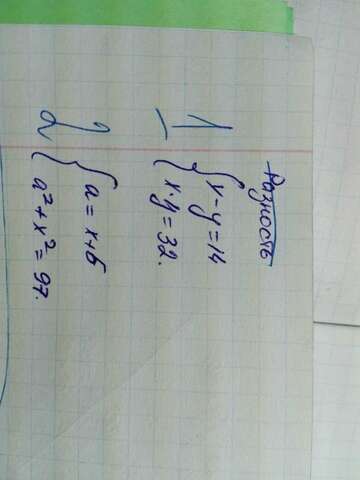 Разность
1
x-y=14
x·y=32.
2
a=x+5
a²+x²=97.